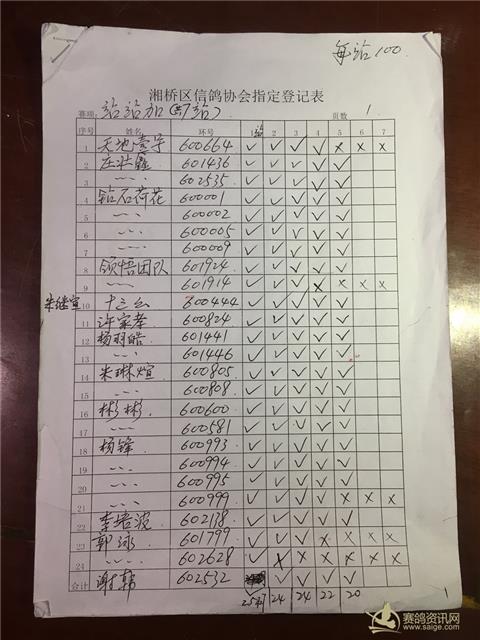 每站100
湘桥区信鸽协会指定登记表
赛项: 站站加 页数 1
序号 姓名 环号 1站 2 3 4 5 6 7
1 天地壹宇 600664 ✓ ✓ ✓ ✓ × × ×
2 庄壮鑫 601436 ✓ ✓ ✓ ✓ ✓
3 〃 602535 ✓ ✓ ✓ ✓ ✓
4 钻石荷花 600001 ✓ ✓ ✓ ✓ ✓
5 〃 600002 ✓ ✓ ✓ ✓ ✓
6 〃 600005 ✓ ✓ ✓ ✓ ✓
7 〃 600009 ✓ ✓ ✓ ✓ ✓
8 领悟团队 601924 ✓ ✓ ✓ ✓ ✓
9 〃 601914 ✓ ✓ ✓ × × × ×
朱继宣 10 十三幺 600444 ✓ ✓ ✓ ✓ ✓
11 许家孝 600824 ✓ ✓ ✓ ✓ ✓
12 杨羽皓 601441 ✓ ✓ ✓ ✓ ✓
13 〃 601446 ✓ ✓ ✓ ✓ ✓
14 朱琳煊 600805 ✓ ✓ ✓ ✓ ✓
15 〃 600808 ✓ ✓ ✓ ✓ ✓
16 彬彬 600600 ✓ ✓ ✓ ✓ ✓
17 〃 600581 ✓ ✓ ✓ ✓ ✓
18 杨锋 600993 ✓ ✓ ✓ ✓ ✓
19 〃 600994 ✓ ✓ ✓ ✓ ✓
20 〃 600995 ✓ ✓ ✓ ✓ ✓
21 〃 600999 ✓ ✓ ✓ ✓ × × ×
22 李培波 602138 ✓ ✓ ✓ ✓ ✓
23 郭泳 601799 ✓ ✓ ✓ × × × ×
24 〃 602628 ✓ × × × × × ×
合计 谢韩 602532 ✓ ✓ ✓ ✓
25羽 24 24 22 20
1
赛鸽资讯网
www.saige.com